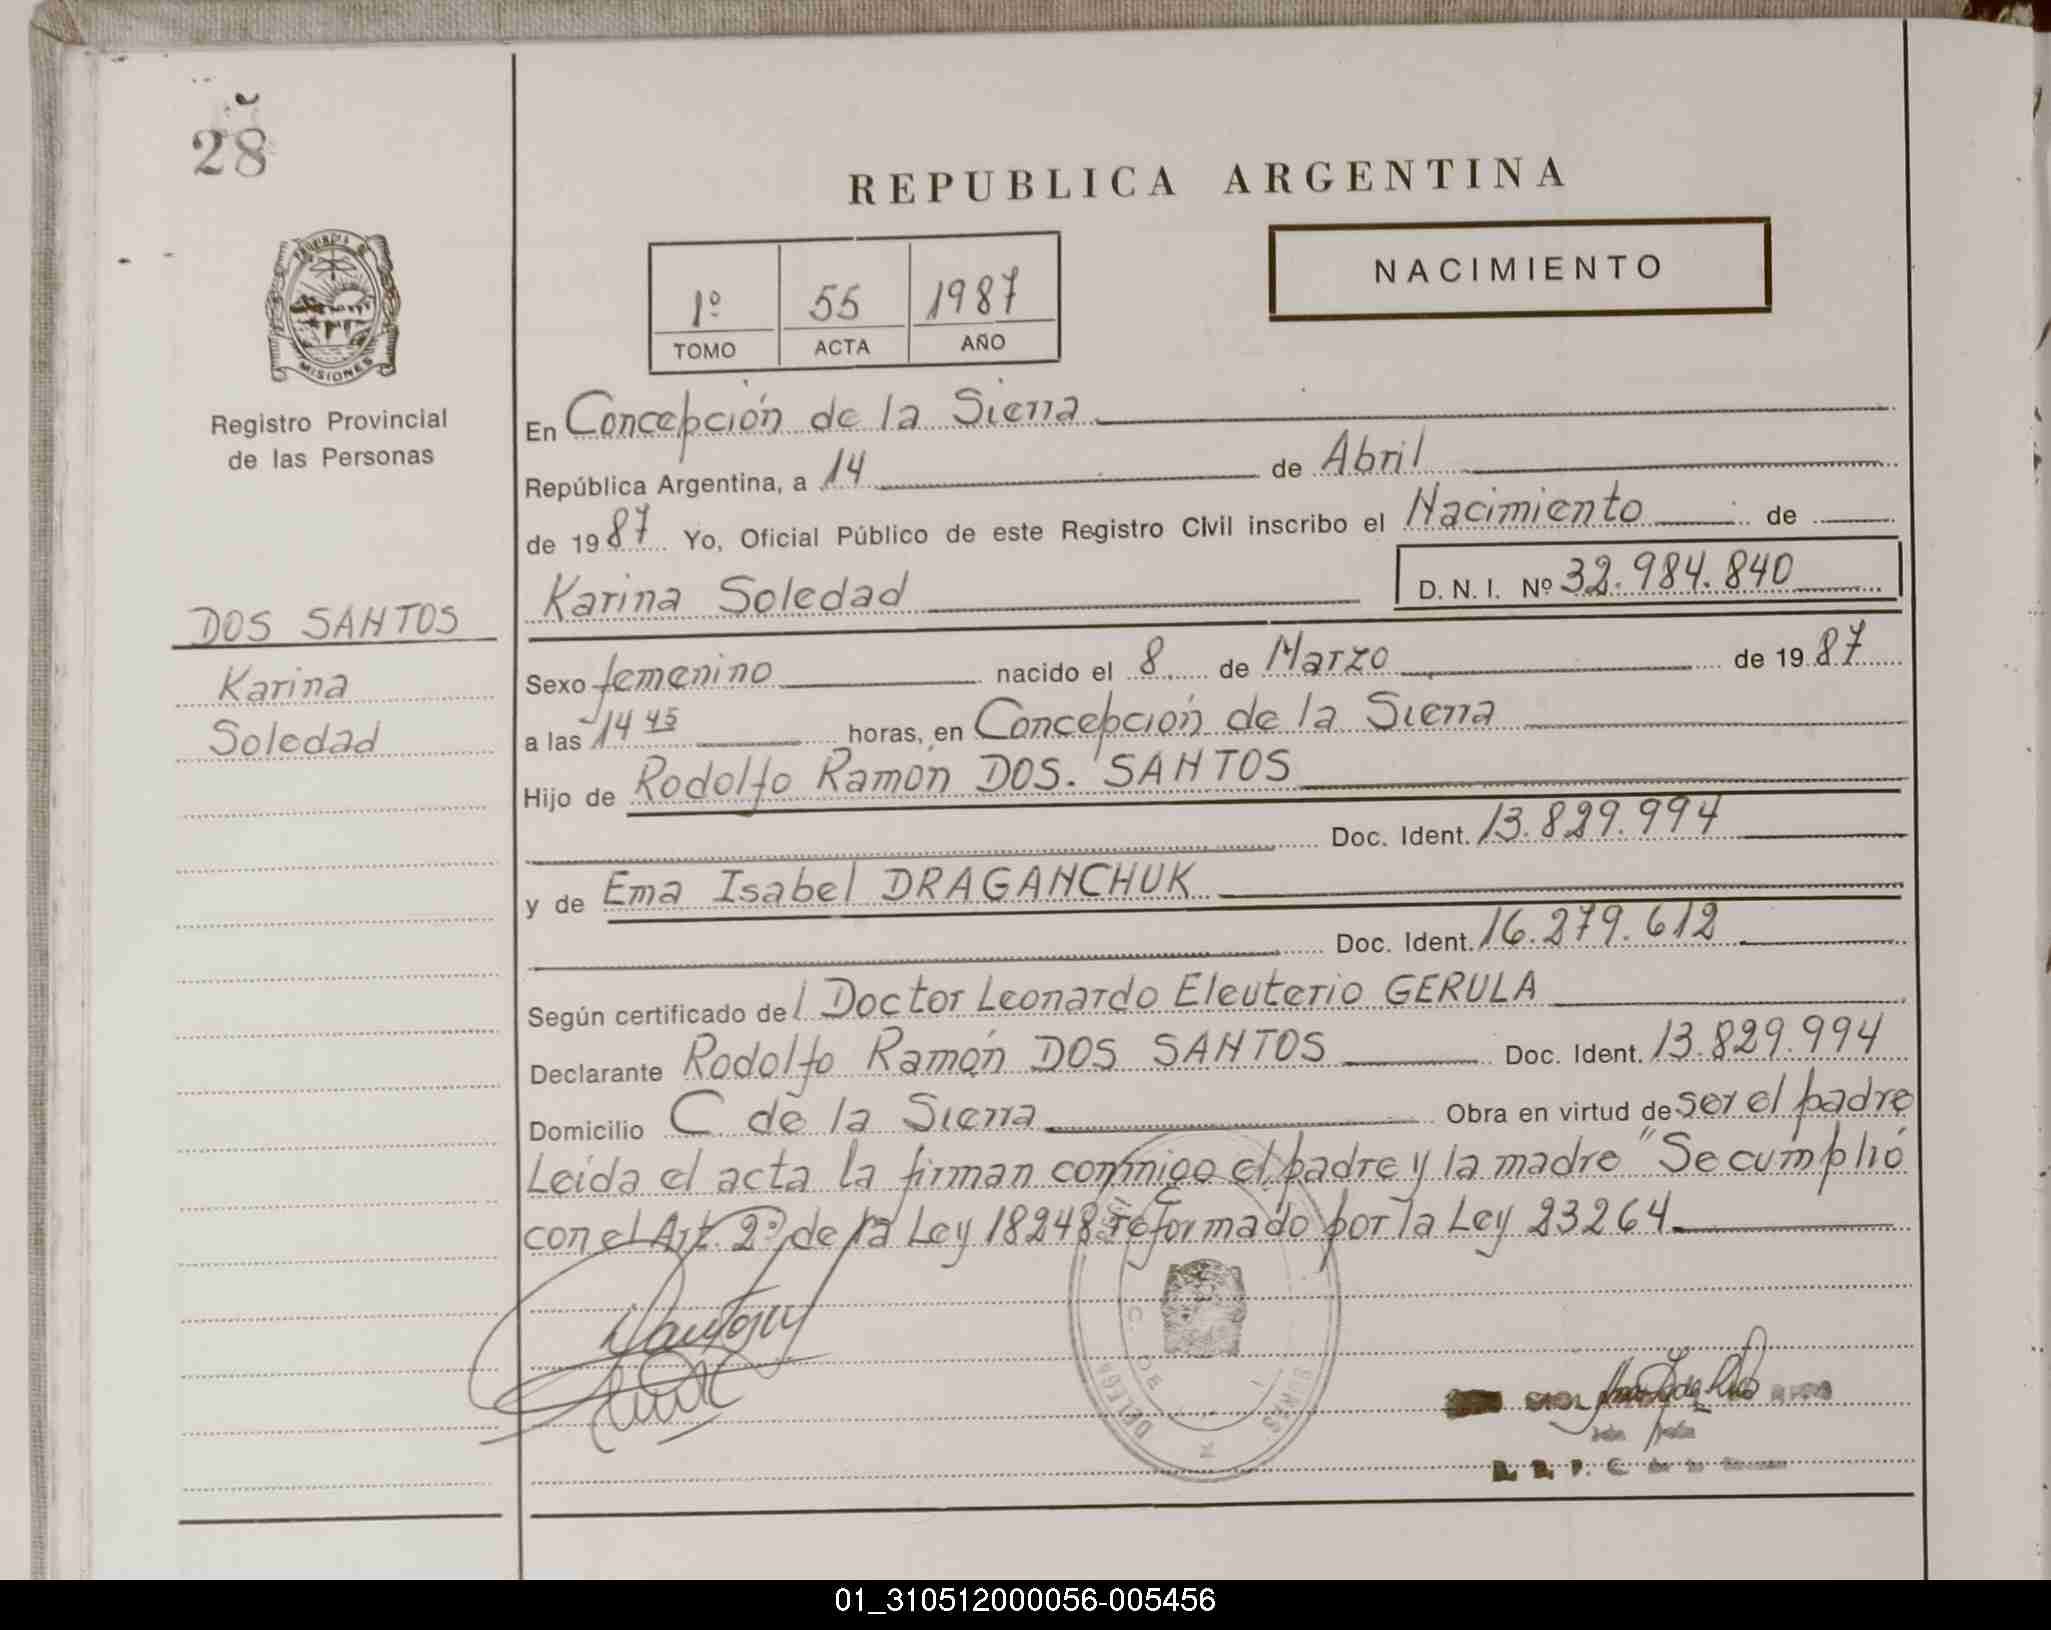 28
REPUBLICA ARGENTINA
NACIMIENTO
1º 55 1987
TOMO ACTA AÑO
MISIONES
Registro Provincial
de las Personas
DOS SANTOS
Karina
Soledad
En Concepción de la Sierra
República Argentina, a 14 de Abril
de 1987 Yo, Oficial Público de este Registro Civil inscribo el Nacimiento de
Karina Soledad D. N. I. Nº 32.984.840
Sexo femenino nacido el 8 de Marzo de 1987
a las 14 45 horas, en Concepción de la Sierra
Hijo de Rodolfo Ramón DOS. SANTOS
Doc. Ident. 13.829.994
y de Ema Isabel DRAGANCHUK
Doc. Ident. 16.279.612
Según certificado del Doctor Leonardo Eleuterio GERULA
Declarante Rodolfo Ramón DOS SANTOS Doc. Ident. 13.829.994
Domicilio C de la Sierra Obra en virtud de ser el padre
Leida el acta la firman conmigo el padre y la madre "Se cumplió
con el Art. 2º de la Ley 18248 reformado por la Ley 23264
01_310512000056-005456